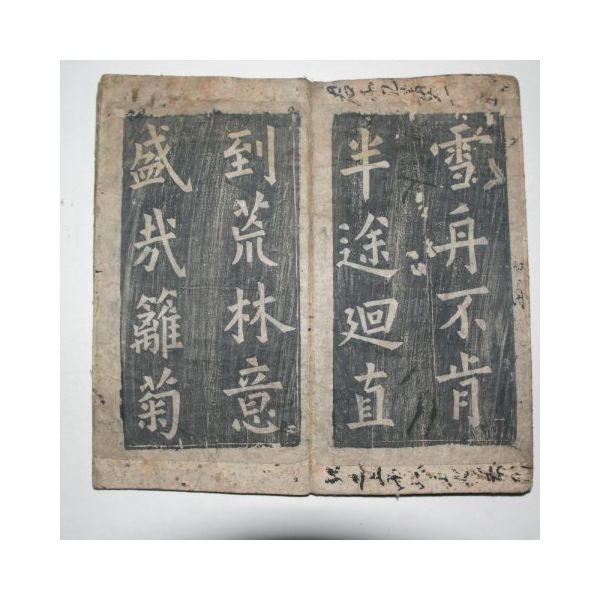 雪舟不肯
半途廻直
到荒林意
盛哉籬菊